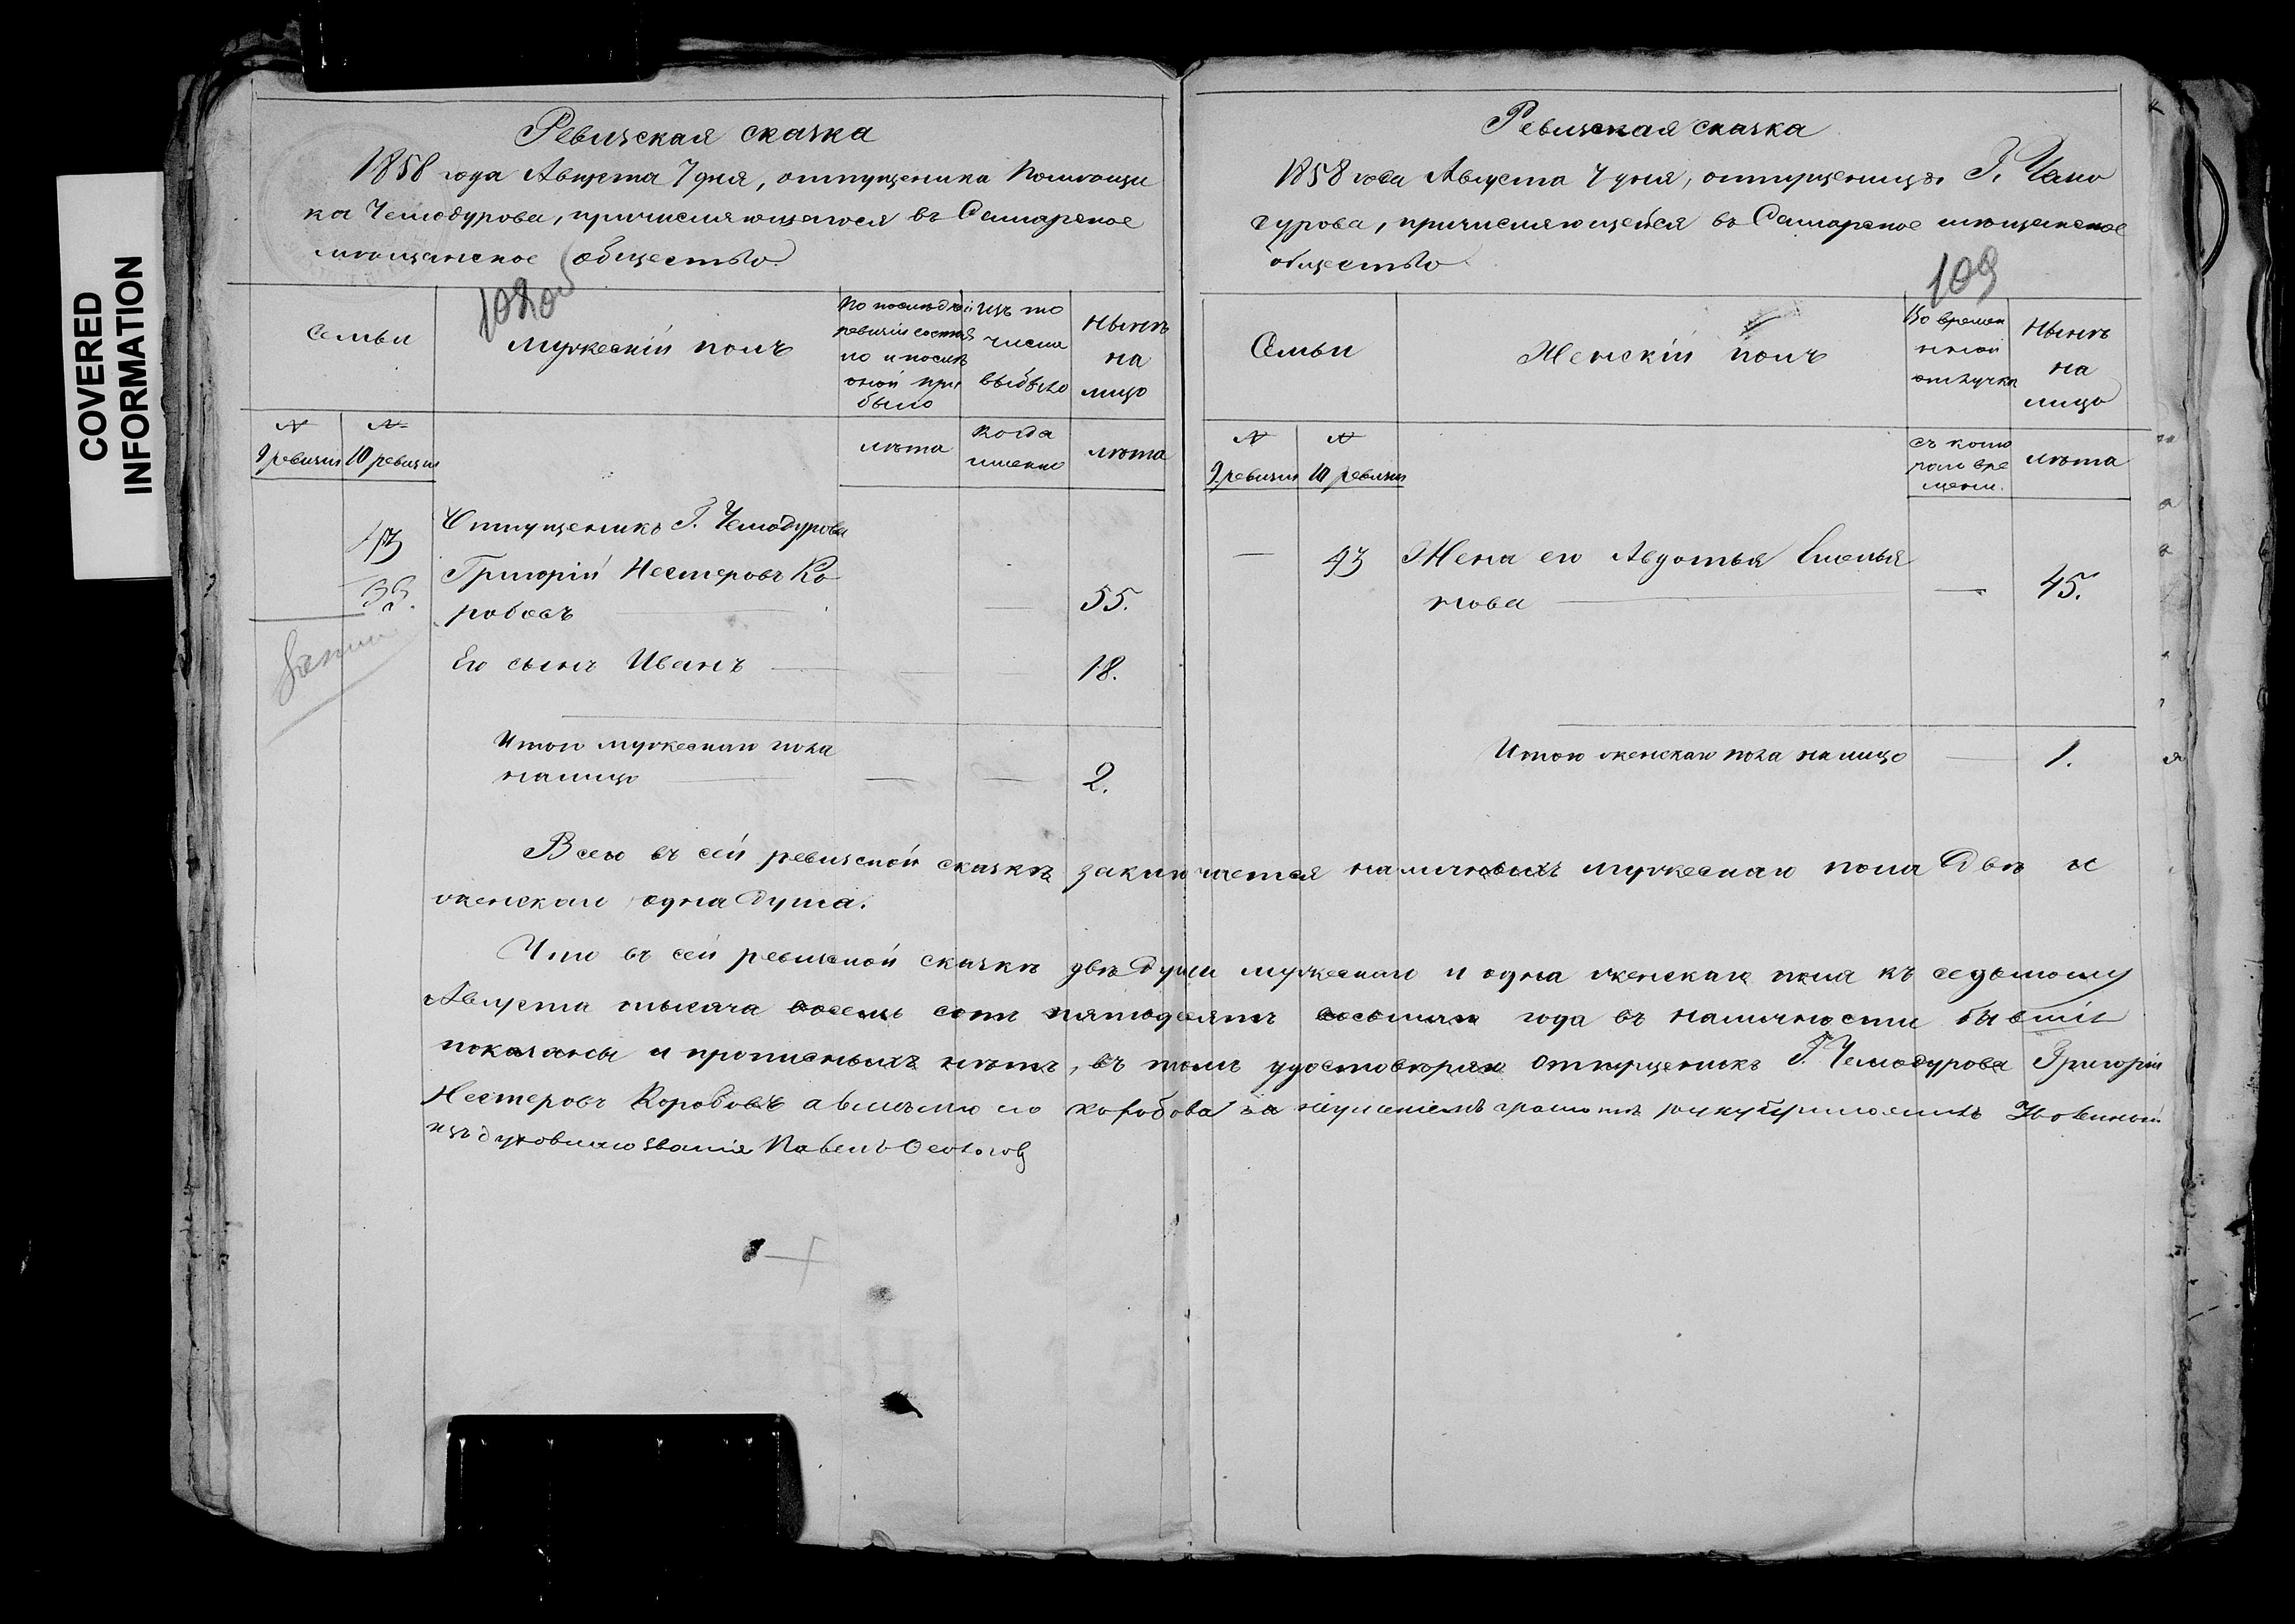 COVERED
INFORMATION
Ревизская сказка
1858 года Августа 7 дня, отпущеника Помѣщи
ка Чемодурова, причисляющагося въ Самарское
мѣщанское общество.
108об
Семьи
Мужескій полъ
По послѣдней
ревизіи состоя
ло и послѣ
оной при
было
Изъ то
числа
выбыло
Нынѣ
на
лицо
№
9 ревизіи
№
10 ревизіи
лѣта
когда
именно
лѣта
Отпущеникъ Г. Чемодурова
43
Григорій Нестеровъ Ко
робовъ
55.
Его сынъ Иванъ
18.
Итого мужескаго пола
налицо
2.
Ревизская сказка
1858 года Августа 7 дня, отпущеницы Г. Чемо
дурова, причисляющейся въ Самарское мѣщанское
общество.
109
Семьи
Женскій полъ
Во времен
нной
отлучкѣ
Нынѣ
на
лицо
№
9 ревизіи
№
10 ревизіи
съ кото
раго вре
мени.
лѣта
43
Жена его Авдотья Емелья
нова
45.
Итого женскаго пола налицо
1.
Всего въ сей ревизской сказкѣ заключается наличныхъ мужескаго пола двѣ и
женскаго одна душа.
Что въ сей ревизской сказкѣ двѣ души мужескаго и одна женскаго пола къ седьмому
Августа тысяча восемь сотъ пятьдесятъ восьмаго года въ наличности бывшіе
показаны и прописныхъ нѣтъ, въ томъ удостовѣряю отпущеникъ Г. Чемодурова Григорій
Нестеровъ Коробовъ а вмѣсто его Коробова за неумѣніемъ грамотѣ руку приложилъ
изъ духовнаго званія Павелъ